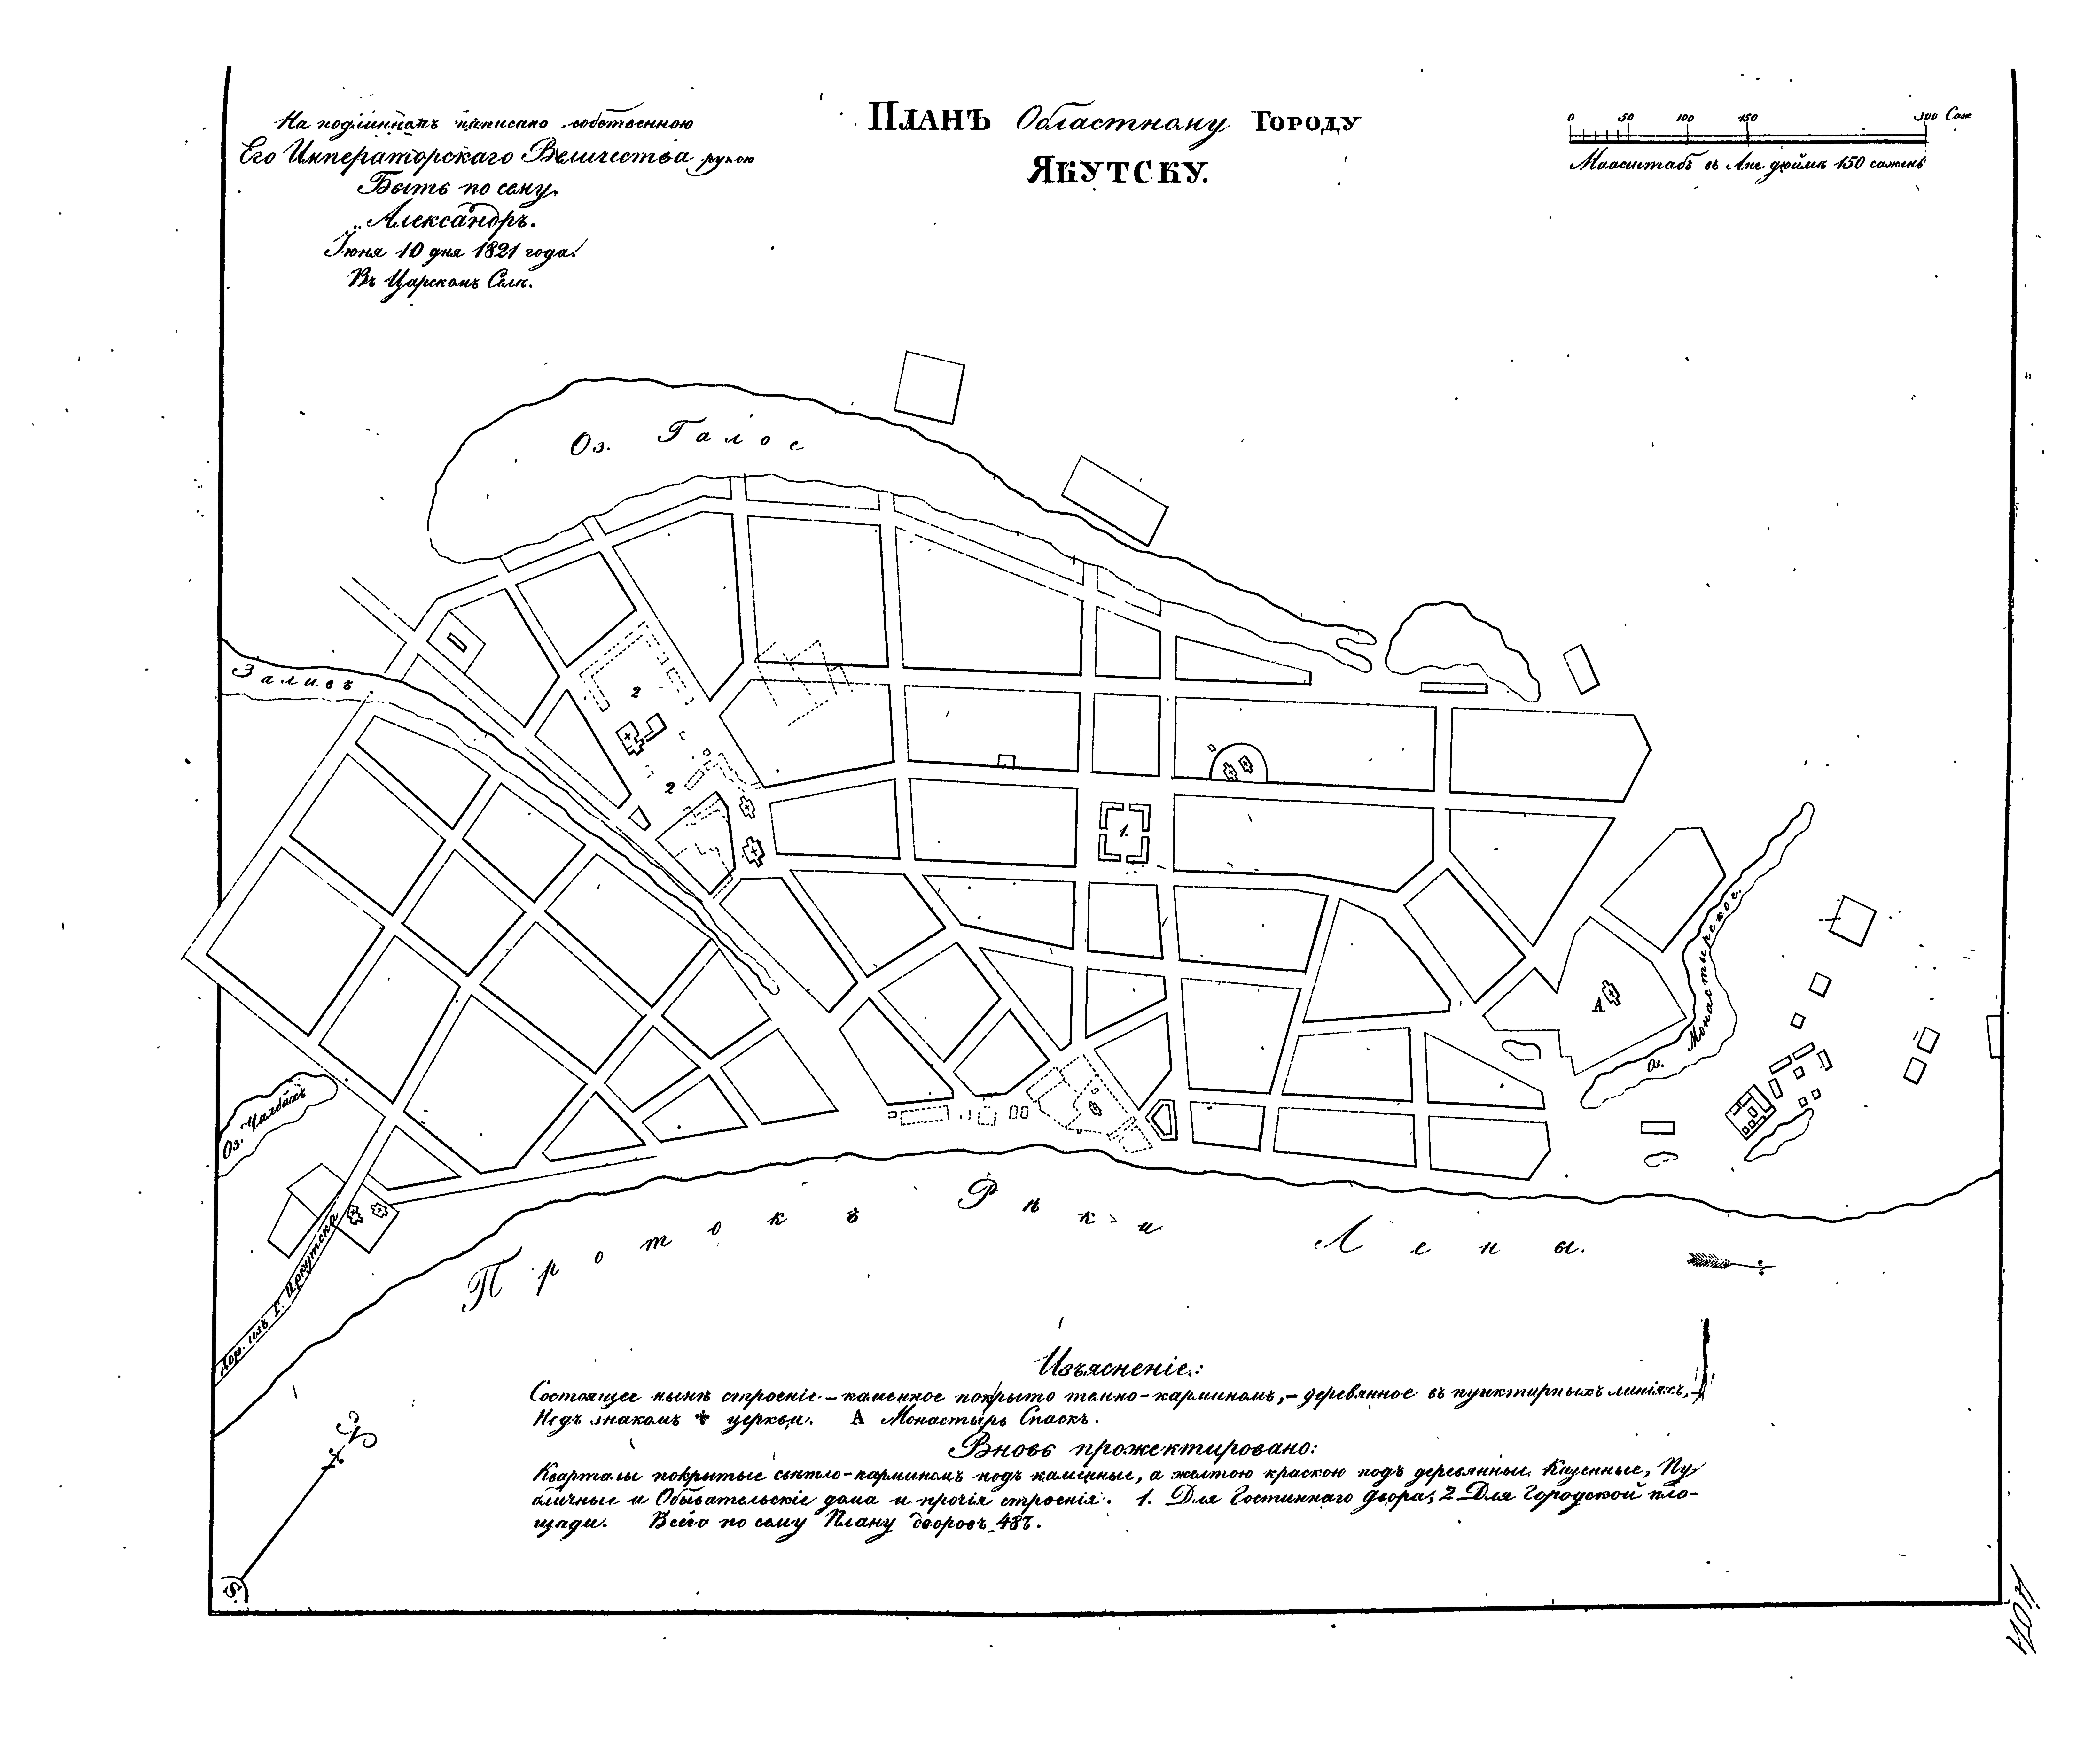 На подлинномъ написано собственною
Его Императорскаго Величества рукою
Быть по сему.
„Александръ.
Іюня 10 дня 1821 года.
Въ Царскомъ Селѣ.
ПЛАНЪ Областному ГОРОДУ
ЯКУТСКУ.
0 50 100 150 300 Саж
Масштабъ въ Анг. дюймѣ 150 сажень
Оз. Талое
Заливъ
2
2
1.
А
Оз. Монастырское.
Оз. Чалбахъ
Дор. изъ Г. Иркутска
Протокъ Рѣки Лена.
Изъясненіе:
Состоящее нынѣ строеніе – каменное покрыто темно-карминомъ, – деревянное въ пунктирныхъ линіяхъ, –
Подъ знакомъ ✝ церкви. А Монастырь Спаск.
Вновь прожектировано:
Кварталы покрытые свѣтло-карминомъ подъ каменные, а желтою краскою подъ деревянные Казенные, Пу-
бличные и Обывательскіе дома и прочія строенія. 1. Для Гостиннаго двора, 2 Для Городской пло-
щади. Всего по сему Плану дворовъ 487.
С